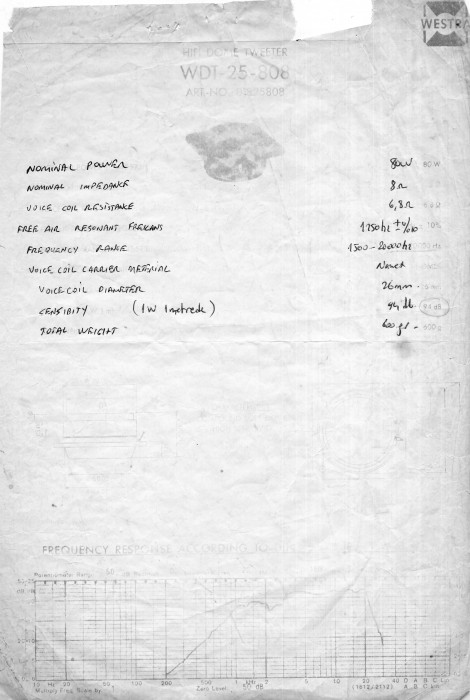 WESTRA
HIFI DOME TWEETER
WDT-25-808
ART-NO.
NOMINAL POWER 80W 80 W
NOMINAL IMPEDANCE 8Ω
VOICE COIL RESISTANCE 6,8Ω
FREE AIR RESONANT FREKANS 1250hz ±%10 10%
FREQUENCY RANGE 1500-20000hz
VOICE COIL CARRIER METERIAL
VOICE COIL DIAMETER 26mm
CENSIBITY (1W 1metrede) 94 db 94 dB
TOTAL WEIGHT 600 gr 600g
FREQUENCY RESPONSE ACCORDING TO
Potentiometer Range 50
10 Hz 20 50 100 200 500 1 kHz 2 5 10 20 40 D A B C
Multiply Freq. Scale by Zero Level: 50 dB (1612/2112) A B C